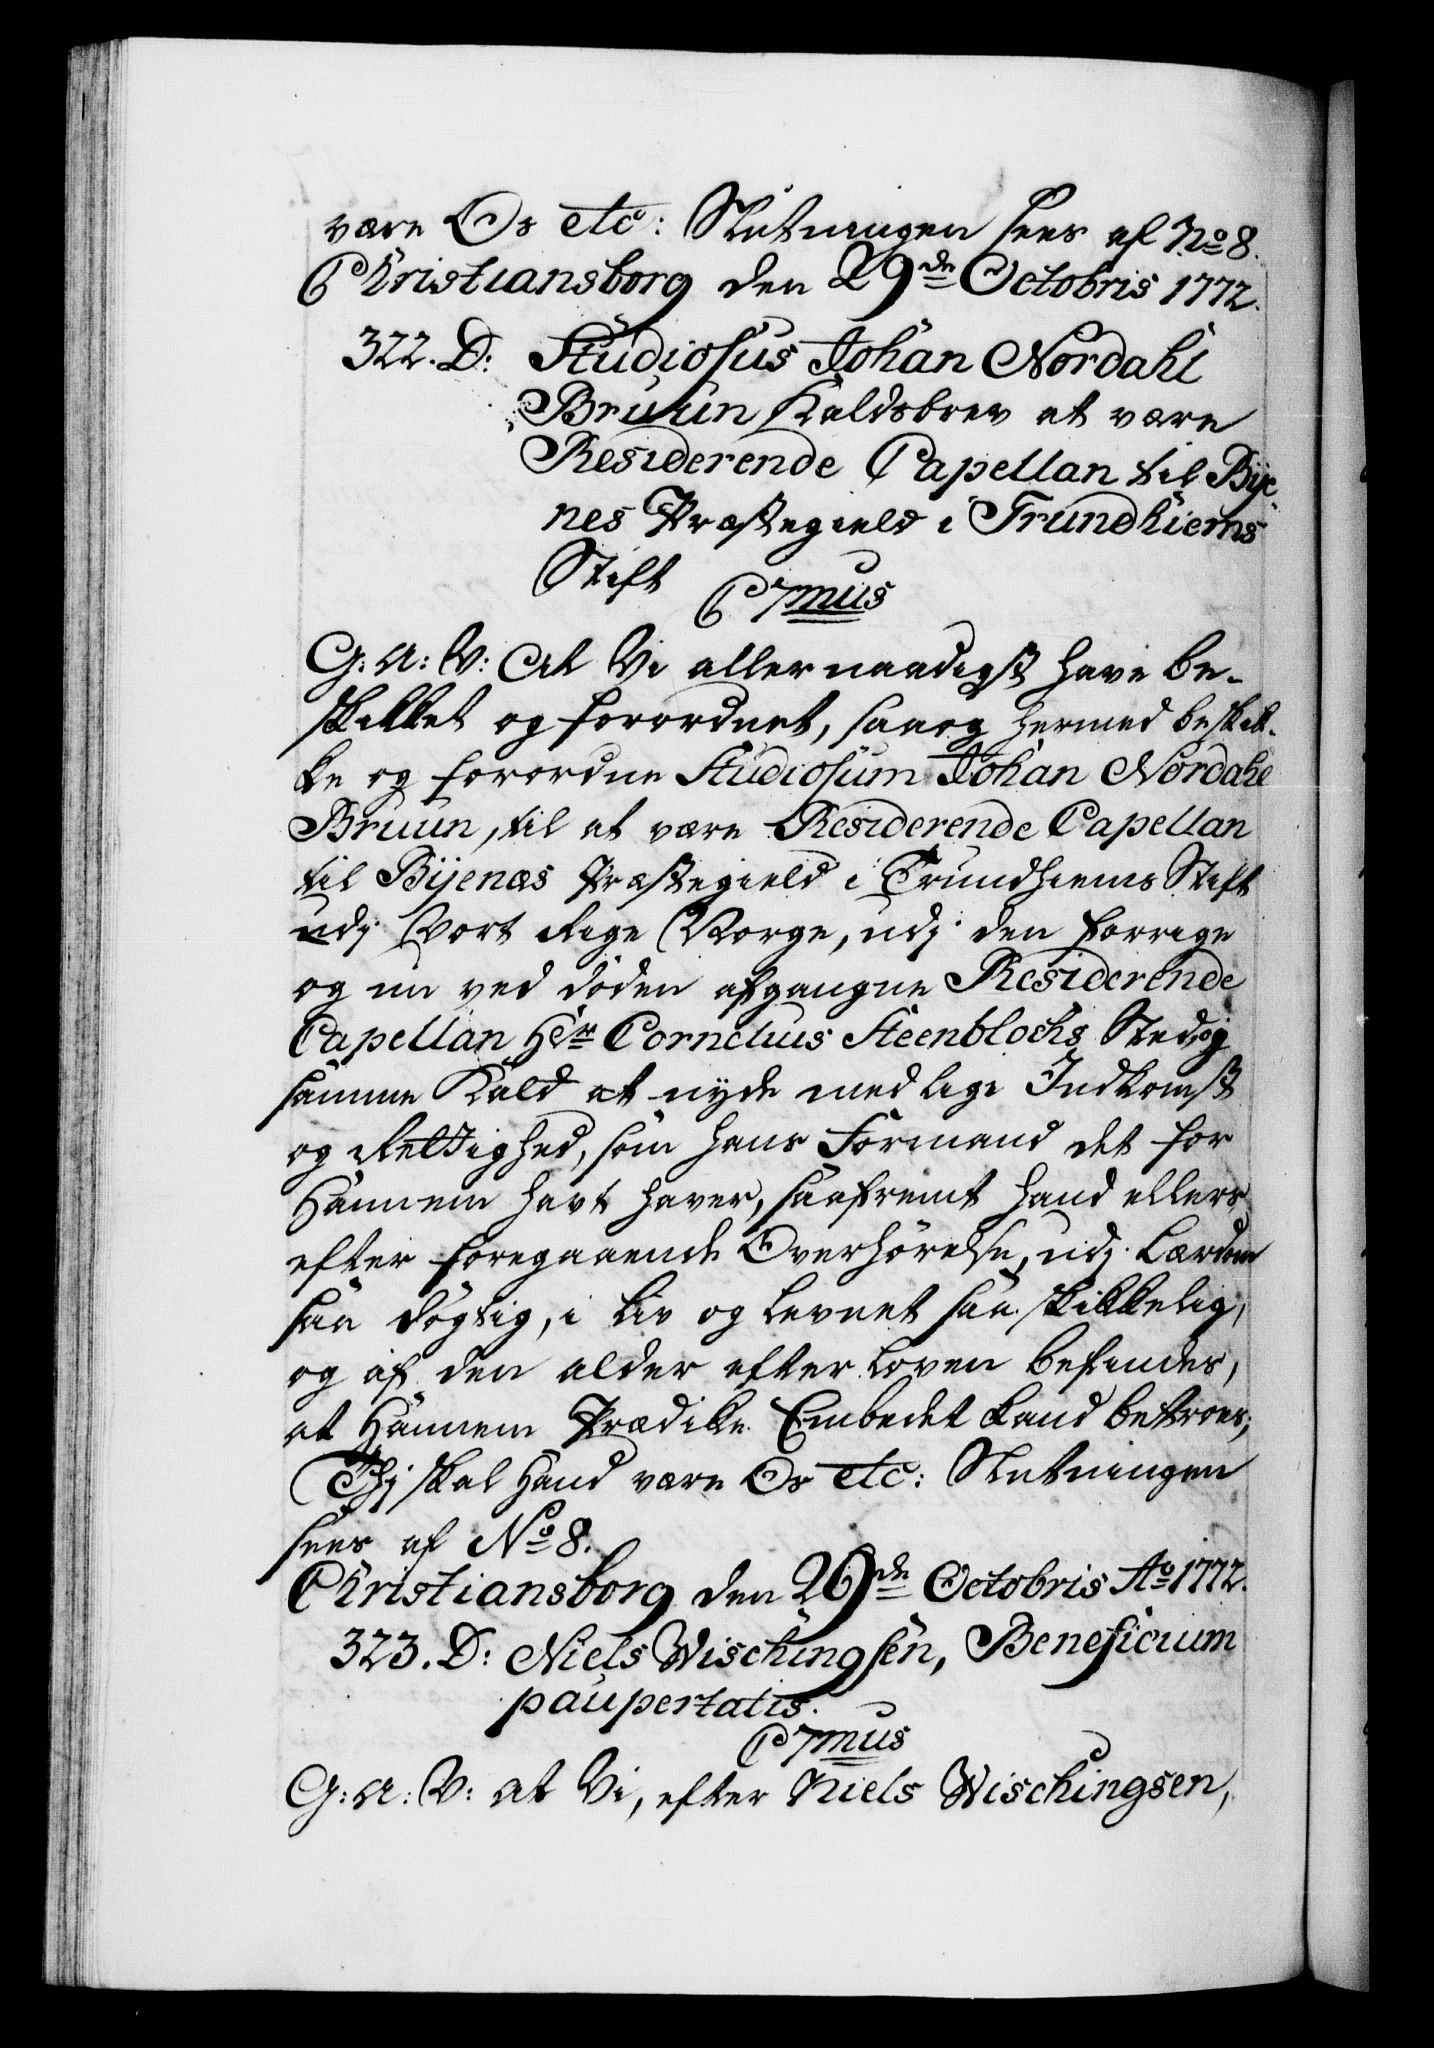 være Os etc: Slutningen sees af No 8.
Christiansborg den 29de Octobris 1772.
322. D: Studiosus Johan Nordahl
Bruun Kaldsbrev at være
Residerende Capellan til Bye-
nes Præstegield i Trundhiems
Stift
C 7mus
G: A: V: At Vi allernaadigst have be-
skikket og forordnet, saaog hermed beskik-
ke og forordne Studiosum Johan Nordahl
Bruun, til at være Residerende Capellan
til Bijenæs Præstegield i Trundhiems Stift
udj Vort Rige Norge, udj den forrige
og nu ved døden afgangne Residerende
Capellan Hr Cornelius Steenblochs Sted, og
samme Kald at nyde med lige Indkomst
og Rettighed, som hans Formand det for
Hannem havt haver, saafremt hand ellers
efter foregaaende Overhørelse, udj Lærdom
saa døgtig, i Liv og Levnet saa skikkelig,
og af den alder efter Loven befindes,
at Hannem Prædike Embedet kand betroes;
Thj skal Hand være Os etc: Slutningen
sees af No 8.
Christiansborg den 29de Octobris Ao 1772.
323. D: Niels Wischingsen, Beneficium
paupertatis.
C 7mus
G: A: V: at Vi, efter Niels Wischingsen,